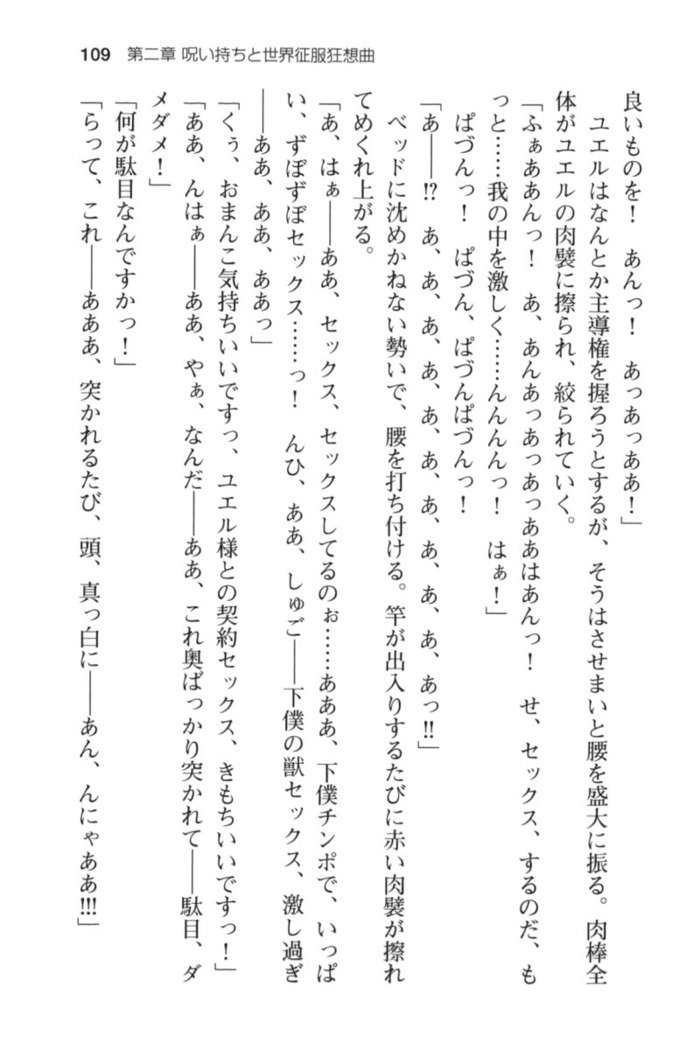 109　第二章 呪い持ちと世界征服狂想曲
良いものを！　あんっ！　あっあっああ！」
　ユエルはなんとか主導権を握ろうとするが、そうはさせまいと腰を盛大に振る。肉棒全
体がユエルの肉襞に擦られ、絞られていく。
「ふぁああんっ！　あ、あんあっあっあっああはあんっ！　せ、セックス、するのだ、も
っと……我の中を激しく……んんんんっ！　はぁ！」
　ぱづんっ！　ぱづん、ぱづんぱづんっ！
「あ――!?　あ、あ、あ、あ、あ、あ、あ、あ、あ、あ、あっ!!」
　ベッドに沈めかねない勢いで、腰を打ち付ける。竿が出入りするたびに赤い肉襞が擦れ
てめくれ上がる。
「あ、はぁ――ああ、セックス、セックスしてるのぉ……あああ、下僕チンポで、いっぱ
い、ずぼずぼセックス……っ！　んひ、ああ、しゅご――下僕の獣セックス、激し過ぎ
――ああ、ああ、ああっ」
「くぅ、おまんこ気持ちいいですっ、ユエル様との契約セックス、きもちいいですっ！」
「ああ、んはぁ――ああ、やぁ、なんだ――ああ、これ奥ばっかり突かれて――駄目、ダ
メダメ！」
「何が駄目なんですかっ！」
「らって、これ――あああ、突かれるたび、頭、真っ白に――あん、んにゃああ!!!」